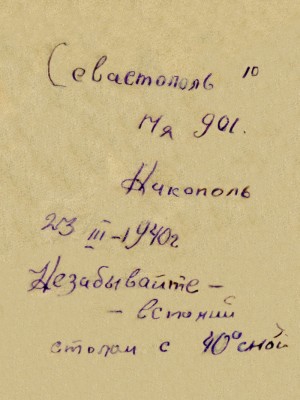 Севастополь 10
П/я 901.
Никополь
23 III-1940г
Незабывайте -
- встоний
столом с 40°сной